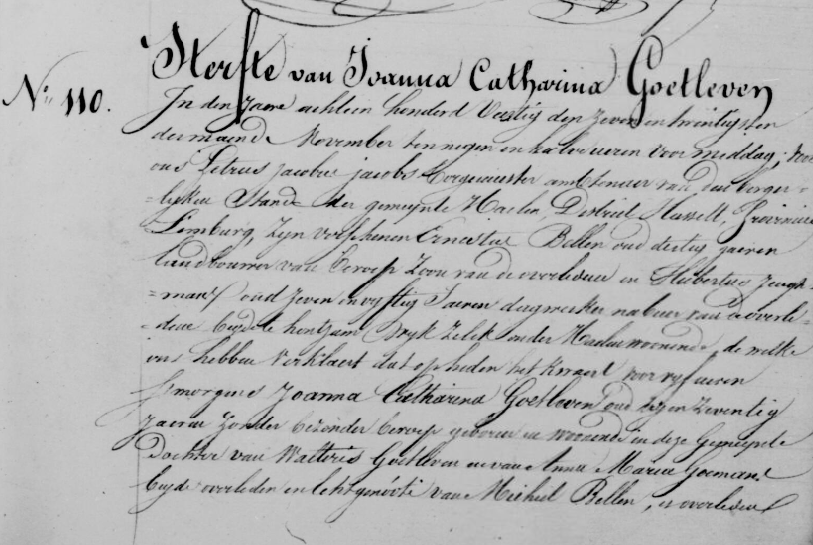 Sterfte van Joanna Catharina Goetleven
N: 110.
In den Jaere achtien honderd Veertig den Zeven en twintigsten
der maend November ten negen en half ueren voor middag, voor
ons Petrus Jacobus Jacobs Borgemeester ambtenaer van den borger=
=lyken Stand der gemeynte Haelen District Hasselt, Provincie
Limburg, zyn verschenen Ernestus Bellen oud dertig jaeren
landbouwer van beroep Zoon van de overledene en Hubertus
oud Zeven en vyftig Jaeren dagwerker nabuer van d'overle=
=dene beyde te wyk Zelck onder Haelen woonende, de welke
ons hebben verklaert dat op heden het kwaert voor vyf ueren
s'morgens Joanna Catharina Goetleven oud Zeventig
jaeren zonder bezonder beroep geboren en woonende in deze Gemeynte
Dochter van Walterus Goetleven en van Anna Maria Goemans
beyde overleden en echtgenoote van Michiel Bellen, is overleden